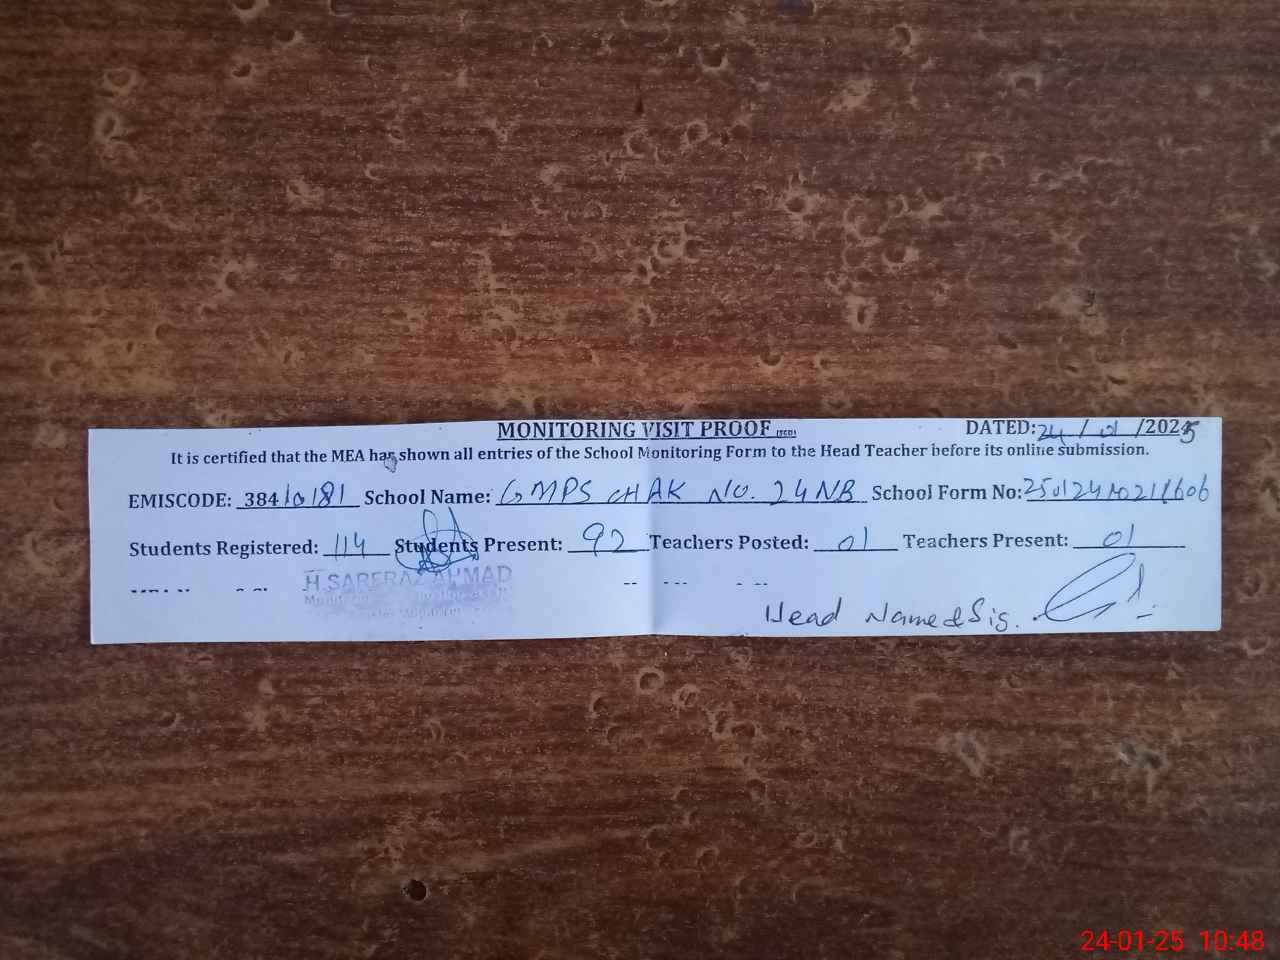 MONITORING VISIT PROOF (SED) DATED: 24/01/2025
It is certified that the MEA has shown all entries of the School Monitoring Form to the Head Teacher before its online submission.
EMISCODE: 38410181 School Name: GMPS CHAK NO. 24NB School Form No:
Students Registered: 114 Students Present: 92 Teachers Posted: 01 Teachers Present: 01
H SARFRAZ AHMAD
Head Name & Sig.
24-01-25 10:48